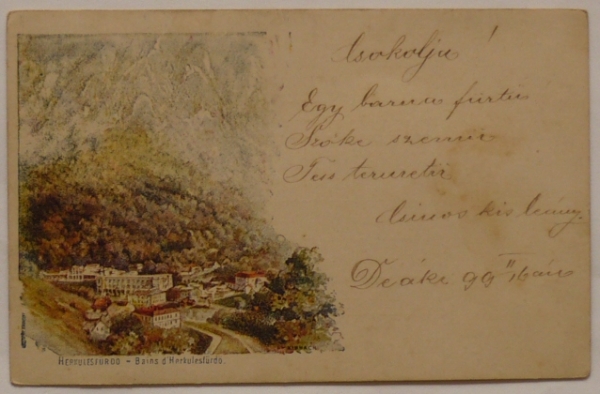 Csokolja!
Egy barna fürtü
Szőke szemü
Tess termetü
csinos kis leány.
Deáki 99 II 16án
HERKULESFÜRDŐ – Bains d'Herkulesfürdő.